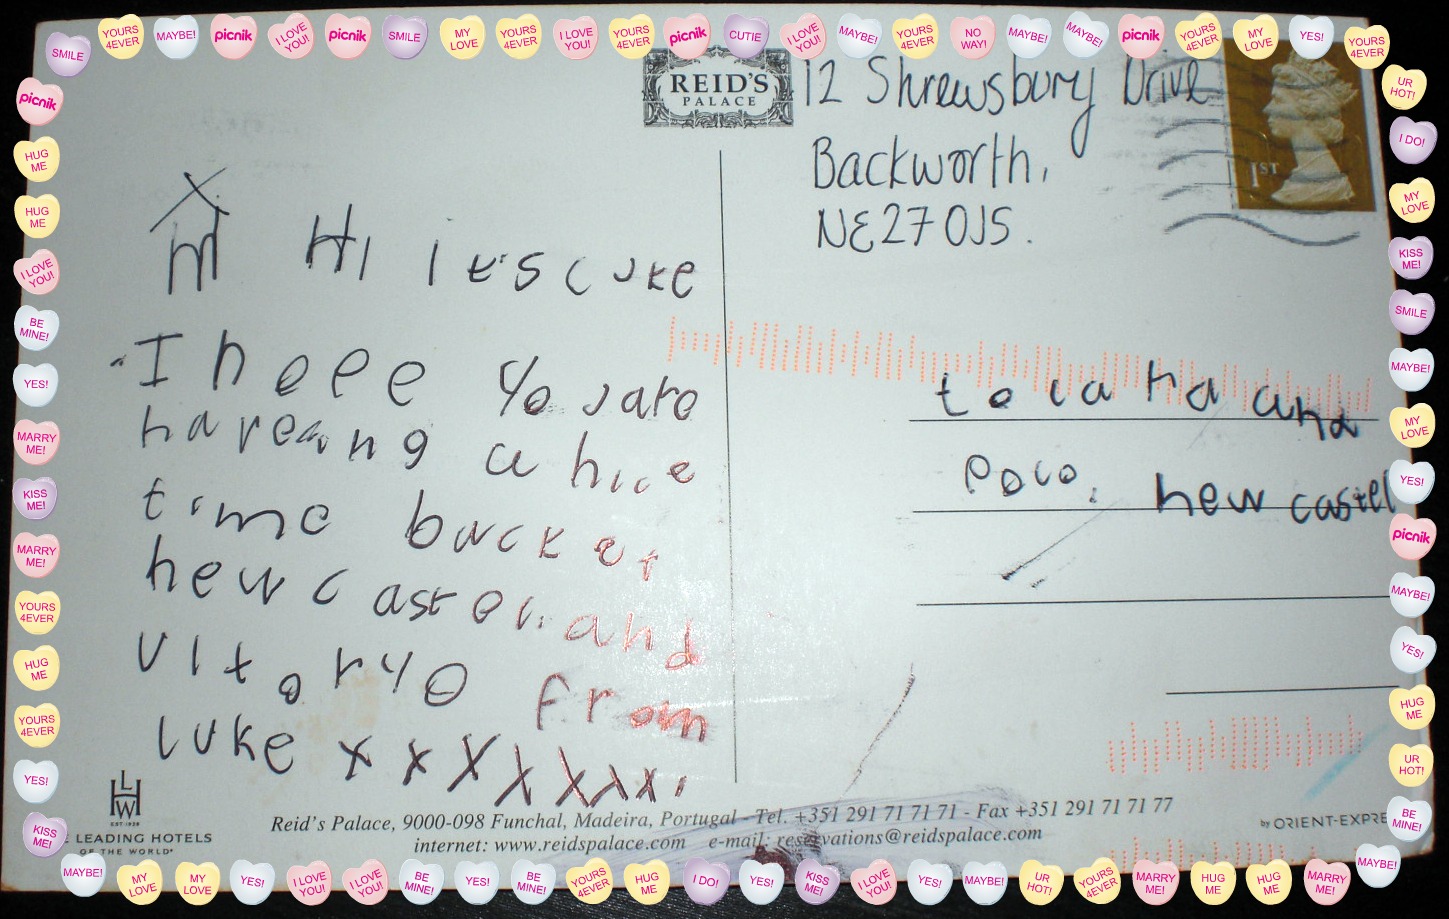 SMILE YOURS 4EVER MAYBE! picnik I LOVE YOU! picnik SMILE MY LOVE YOURS 4EVER I LOVE YOU! YOURS 4EVER picnik CUTIE I LOVE YOU! MAYBE! YOURS 4EVER NO WAY! MAYBE! MAYBE! picnik YOURS 4EVER MY LOVE YES! YOURS 4EVER
picnik
HUG ME
HUG ME
I LOVE YOU!
BE MINE!
YES!
MARRY ME!
KISS ME!
MARRY ME!
YOURS 4EVER
HUG ME
YOURS 4EVER
YES!
KISS ME!
REID'S
PALACE
12 Shrewsbury Drive
Backworth,
NE27 0JS.
1ST
HI it's Luke
I hope you are
hareang a nice
time back at
new castel. and
Vitoryo from
luke x x x x x x x x
to lara and
Polo. new castel
L
H
W
EST·1928
LEADING HOTELS
OF THE WORLD
Reid's Palace, 9000-098 Funchal, Madeira, Portugal - Tel. +351 291 71 71 71 - Fax +351 291 71 71 77
internet: www.reidspalace.com e-mail: reservations@reidspalace.com
by ORIENT-EXPRE
UR HOT!
I DO!
MY LOVE
KISS ME!
SMILE
MAYBE!
MY LOVE
YES!
picnik
MAYBE!
YES!
HUG ME
UR HOT!
BE MINE!
MAYBE! MY LOVE MY LOVE YES! I LOVE YOU! I LOVE YOU! BE MINE! YES! BE MINE! YOURS 4EVER HUG ME I DO! YES! KISS ME! I LOVE YOU! YES! MAYBE! UR HOT! YOURS 4EVER MARRY ME! HUG ME HUG ME MARRY ME! MAYBE!